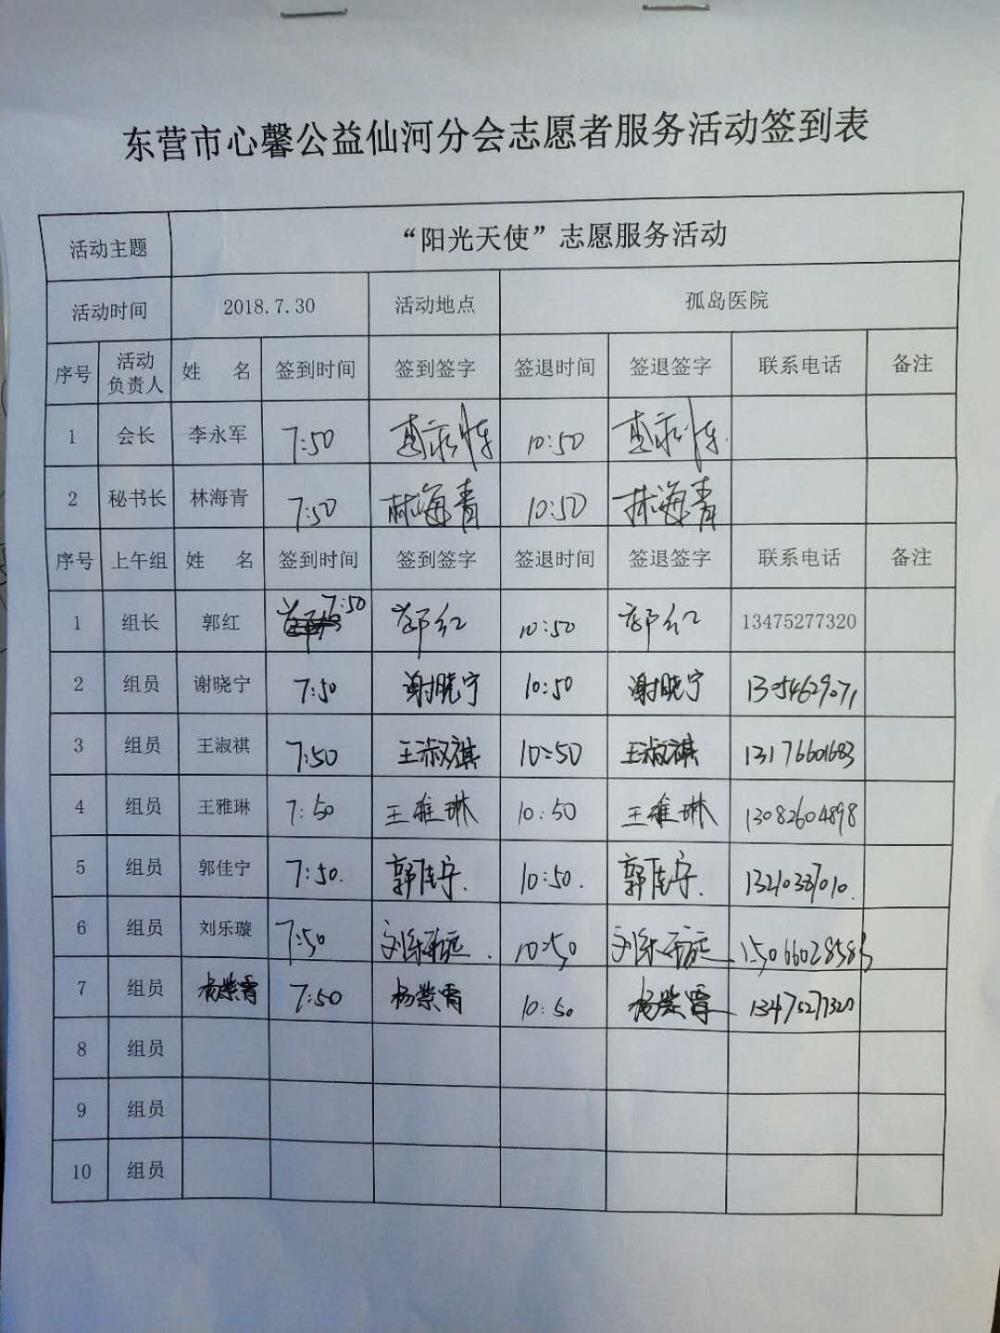 东营市心馨公益仙河分会志愿者服务活动签到表
活动主题 “阳光天使”志愿服务活动
活动时间 2018.7.30 活动地点 孤岛医院
序号 活动负责人 姓 名 签到时间 签到签字 签退时间 签退签字 联系电话 备注
1 会长 李永军 7:50 10:50
2 秘书长 林海青 7:50 林海青 10:50 林海青
序号 上午组 姓 名 签到时间 签到签字 签退时间 签退签字 联系电话 备注
1 组长 郭红 7:50 郭红 10:50 郭红 13475277320
2 组员 谢晓宁 7:50 谢晓宁 10:50 谢晓宁
3 组员 王淑祺 7:50 王淑祺 10:50 王淑祺 13176601683
4 组员 王雅琳 7:50 王雅琳 10:50 王雅琳 13082604898
5 组员 郭佳宁 7:50. 郭佳宁. 10:50. 郭佳宁.
6 组员 刘乐璇 7:50 刘乐璇. 10:50 刘乐璇 15066028585
7 组员 杨紫霄 7:50 杨紫霄 10:50 杨紫霄 13475277320
8 组员
9 组员
10 组员